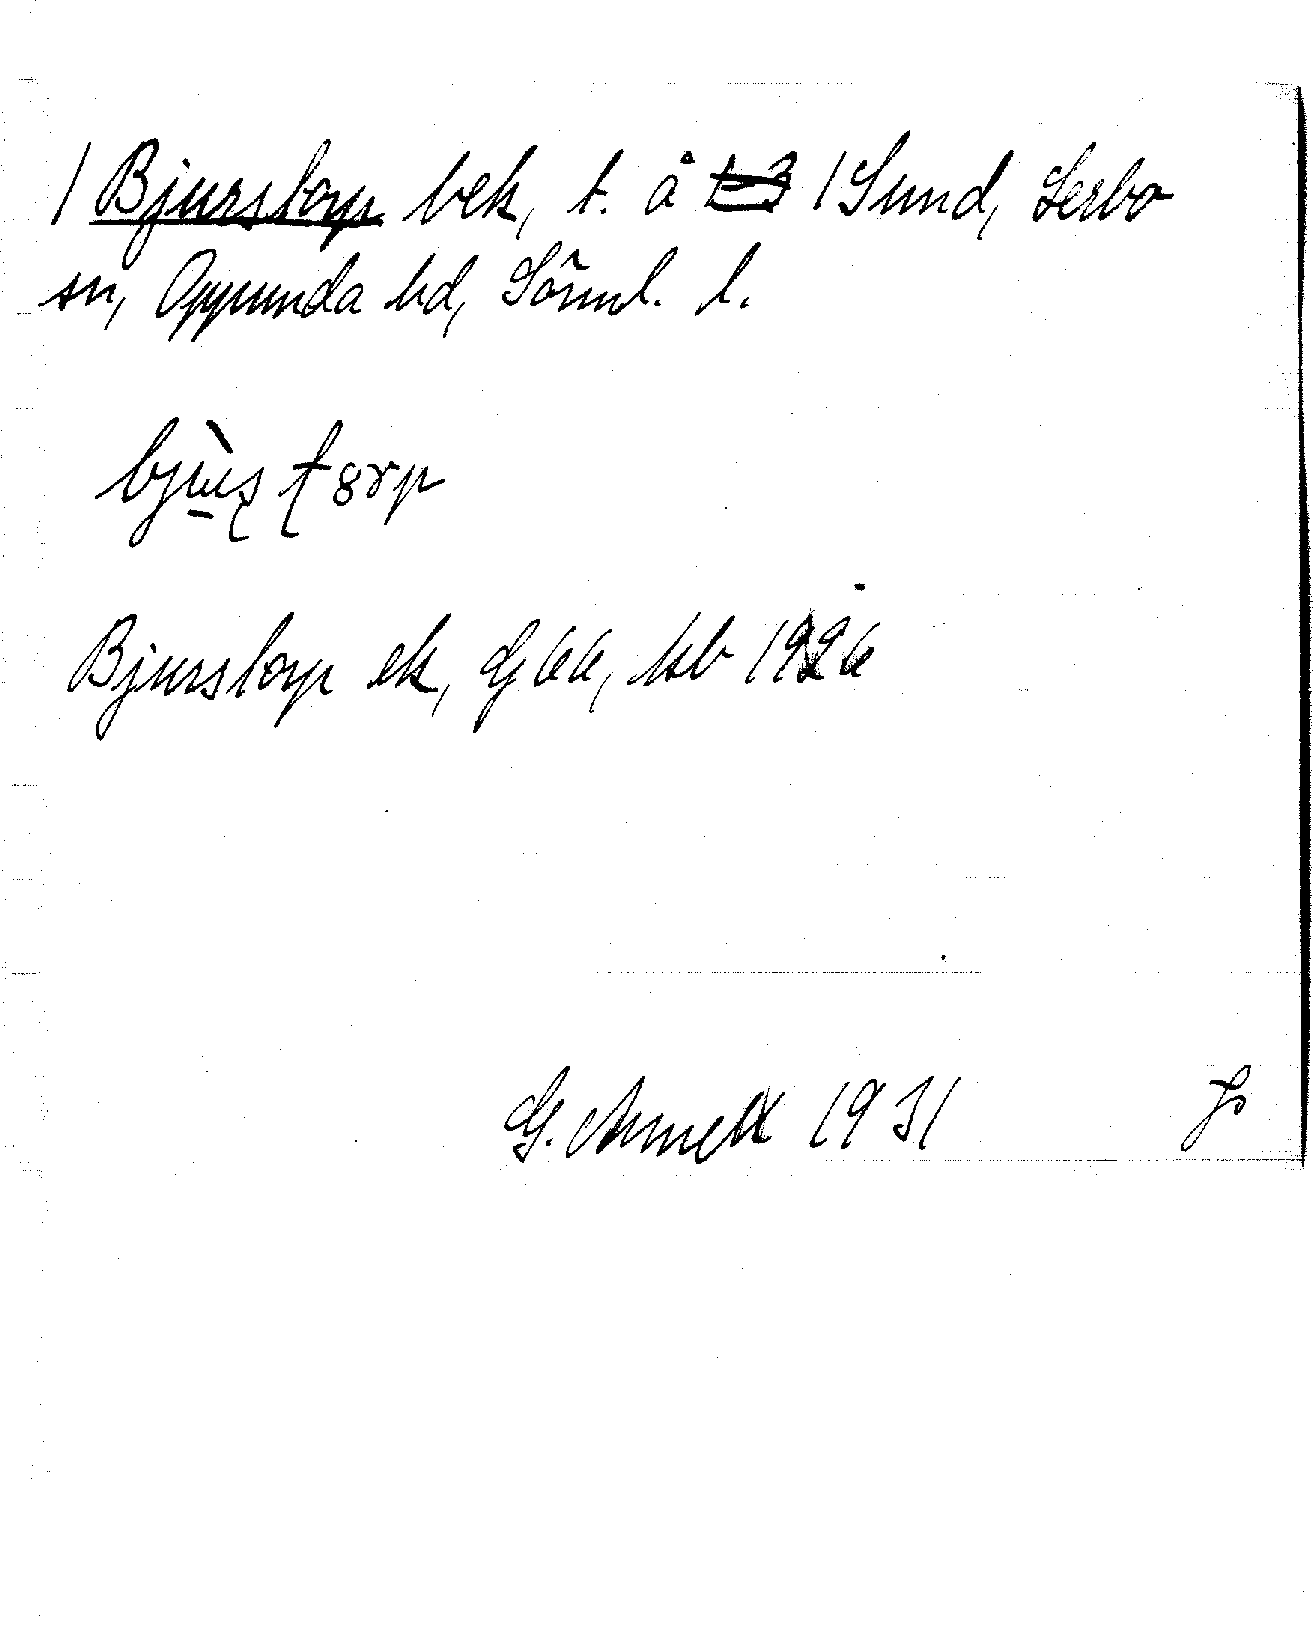 / Bjurstorp bek, t. å 1-3 /Sund, Lerbo
sn, Oppunda hd, Sörml. l.
bjùʂ ʈ8rp
Bjurstorp ek, Gj 66, kb 1926
G. Ameen 1931